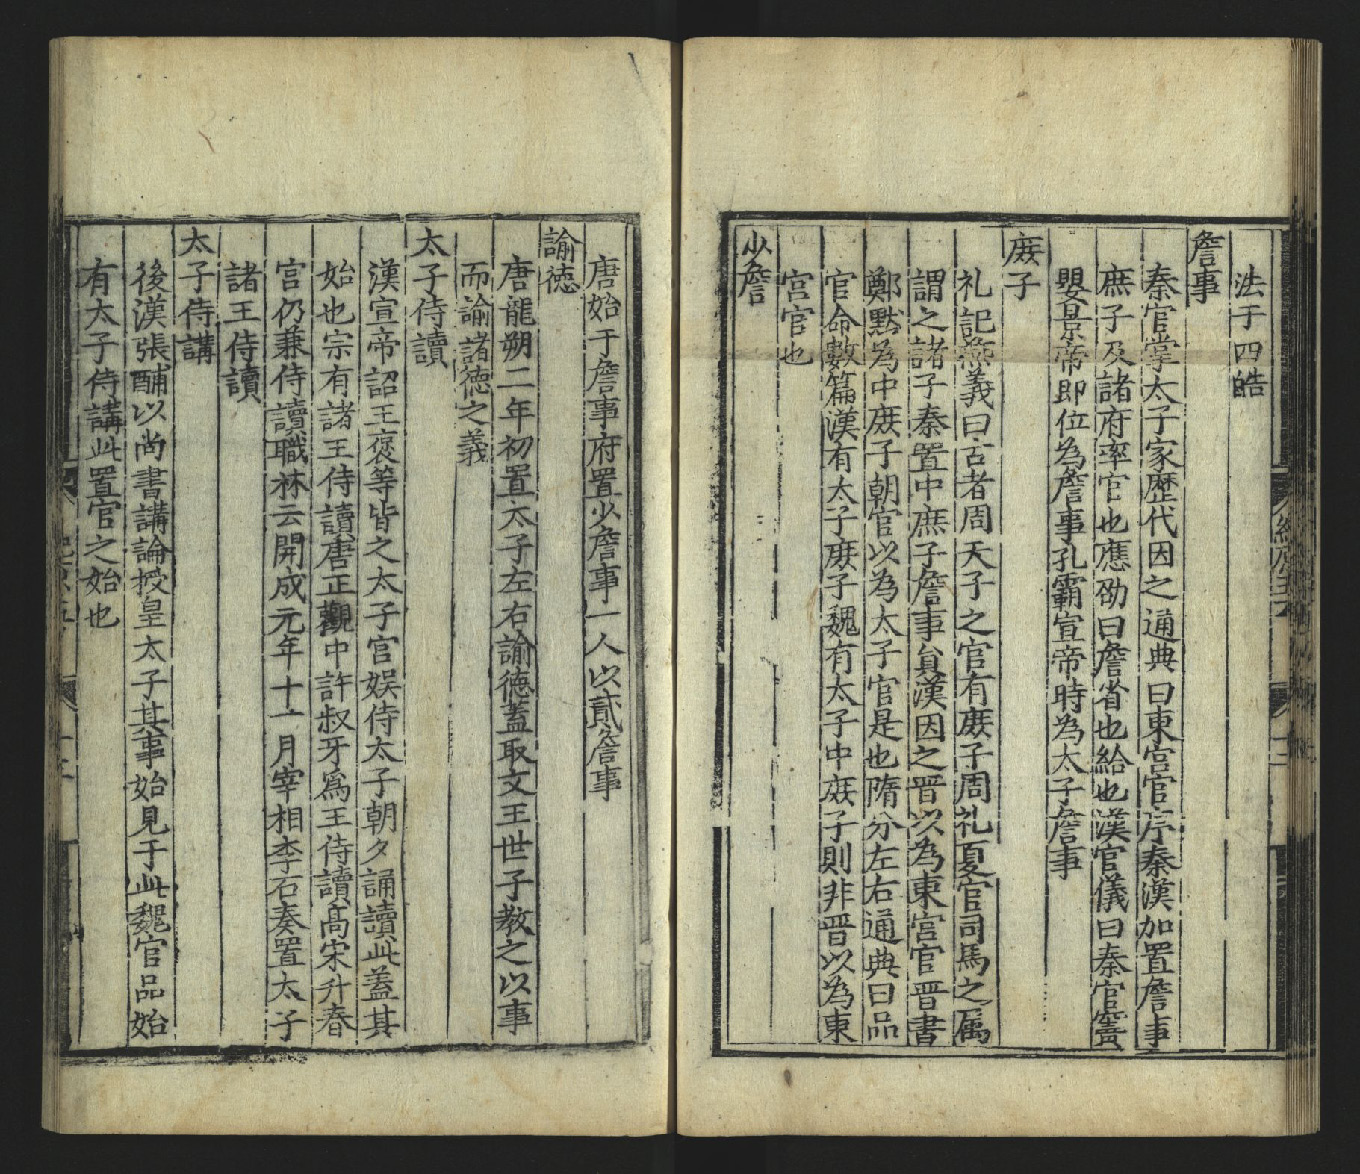 法于四皓
詹事
秦官掌太子家歴代因之通典曰東宫官序秦漢加置詹事
庶子及諸府率官也應劭曰詹省也給也漢官儀曰秦官竇
嬰景帝即位為詹事孔霸宣帝時為太子詹事
庻子
礼記燕義曰古者周天子之官有庻子周礼夏官司馬之属
謂之諸子秦置中庶子詹事貟漢因之晋以為東宫官晋書
鄭默為中庻子朝官以為太子官是也隋分左右通典曰品
官命數篇漢有太子庻子魏有太子中庻子則非晋以為東
宫官也
少詹
唐始于詹事府置少詹事一人以貳詹事
諭徳
唐龍朔二年初置太子左右諭徳蓋取文王世子教之以事
而諭諸徳之義
太子侍讀
漢宣帝詔王褒等皆之太子官娱侍太子朝夕誦讀此蓋其
始也宗有諸王侍讀唐正觀中許叔牙爲王侍讀高宋升春
宫仍兼侍讀職林云開成元年十一月宰相李石奏置太子
諸王侍讀
太子侍講
後漢張酺以尚書講論授皇太子其事始見于此魏官品始
有太子侍講此置官之始也